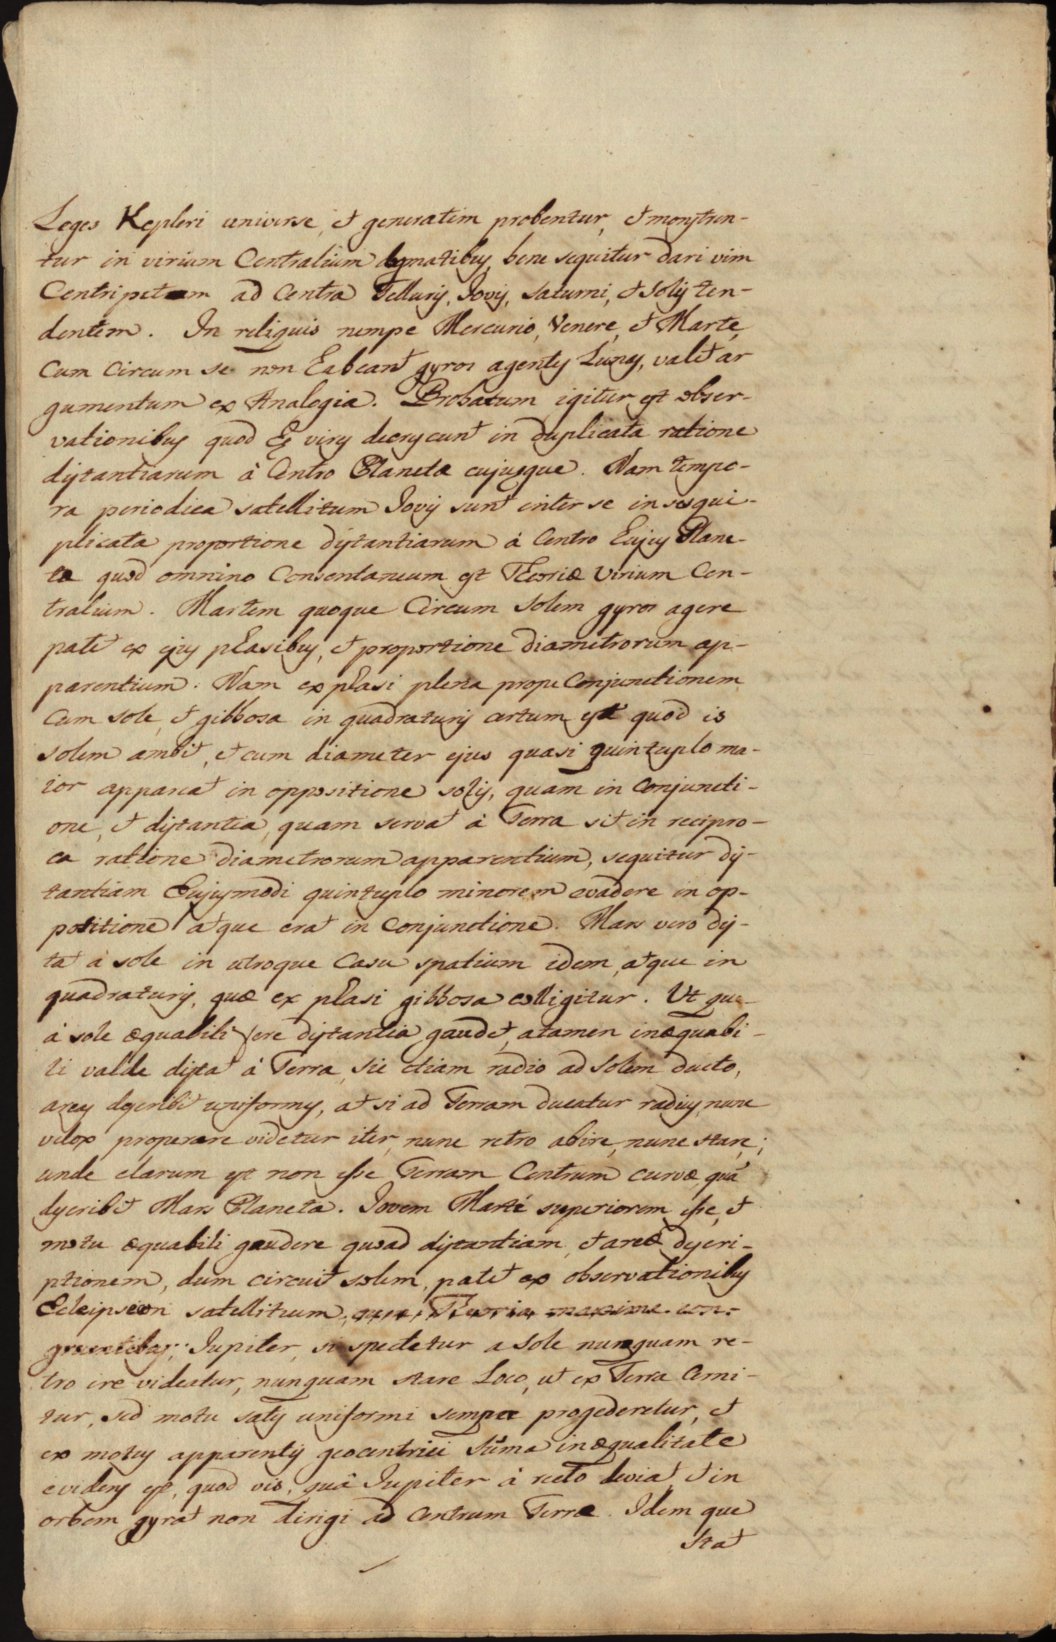 Leges Kepleri universe, et generatim probentur, et monstren-
tur in virium Centralium dogmatibus, bene sequitur dari vim
Centripetam ad Centra Telluris, Jovis, Saturni, et Solis ten-
dentem. In reliquis nempe Mercurio, Venere, et Marte,
Cum circum se non habeant gyros agentes Lunas, valet ar
gumentum ex Analogia. Probatum igitur est obser-
vationibus quod hæ vires decrescunt in duplicata ratione
distantiarum à Centro Planetæ cujusque. Nam tempo-
ra periodica satellitum Jovis sunt inter se in sesqui-
plicata proportione distantiarum à Centro hujus Plane-
tæ quod omnino Consentaneum est Theoriæ Virium Cen-
tralium. Martem quoque Circum Solem gyros agere
patet ex ejus phasibus, et proportione diametrorum ap-
parentium. Nam ex phasi plena prope Conjunctionem
Cum sole, et gibbosa in quadraturis certum est quod is
solem ambit, et cum diameter ejus quasi quintuplo ma-
ior appareat in oppositione solis, quam in Conjuncti-
one, et distantia, quam servat à Terra sit in recipro-
ca ratione diametrorum apparentium, sequitur dis-
tantiam hujusmodi quintuplo minorem evadere in op-
positione atque erat in Conjunctione. Mars vero dis-
tat à sole in utroque Casu spatium idem, atque in
quadraturis, quæ ex phasi gibbosa colligitur. Ut que
à sole æquabili fere distantia gaudet, atamen inæquabi-
li valde distat à Terra, sic etiam radio ad Solem ducto,
areas describit uniformes, at si ad Terram ducatur radius, nunc
velox properare videtur iter, nunc retro abire, nunc stare;
unde clarum est non esse Terram Centrum curvæ quã
describit Mars Planeta. Jovem Marte superiorem esse, et
motu æquabili gaudere quoad distantiam, et areæ descri-
ptionem, dum circuit solem, patet ex observationibus
Ecleipseon satellitum, quæ, Theoria maxime con-
gruentibus; Jupiter, si spectetur a Sole nunquam re-
tro ire videatur, nunquam stare Loco, ut ex Terra Cerni-
tur, sed motu satis uniformi semper progederetur, et
ex motus apparentis geocentrici Sũma inæqualitate
evidens est, quod vis, quâ Jupiter à recto deviat, et in
orbem gyrat non dirigi ad Centrum Terræ. Idem que
stat